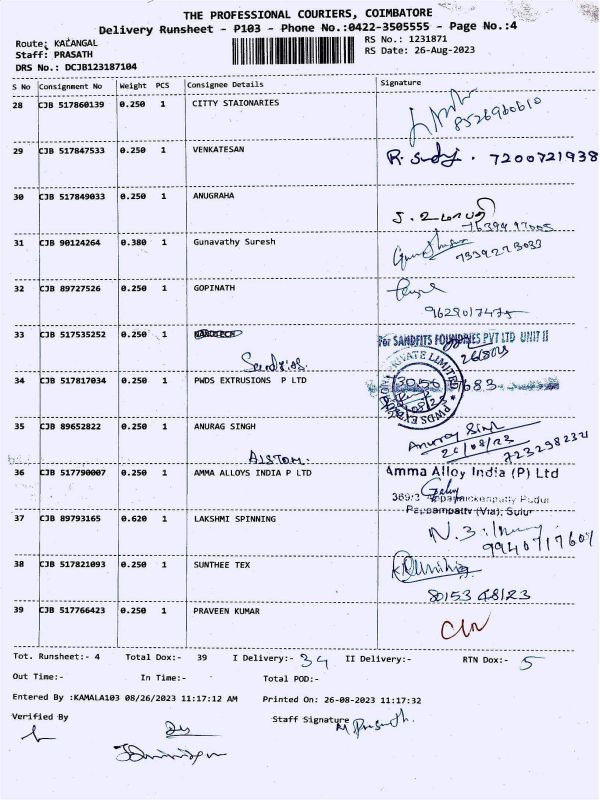 THE PROFESSIONAL COURIERS, COIMBATORE
Delivery Runsheet - P103 - Phone No.:0422-3505555 - Page No.:4
Route: KALANGAL
Staff: PRASATH
DRS No.: DCJB123187104
RS No.: 1231871
RS Date: 26-Aug-2023
S No Consignment No Weight PCS Consignee Details Signature
28 CJB 517860139 0.250 1 CITTY STAIONARIES
8526960610
29 CJB 517847533 0.250 1 VENKATESAN
7200721938
30 CJB 517849033 0.250 1 ANUGRAHA
31 CJB 90124264 0.380 1 Gunavathy Suresh
32 CJB 89727526 0.250 1 GOPINATH
33 CJB 517535252 0.250 1
For SANDFITS FOUNDRIES PVT LTD UNIT II
34 CJB 517817034 0.250 1 PWDS EXTRUSIONS P LTD
35 CJB 89652822 0.250 1 ANURAG SINGH
Anurag Singh
26/08/23
7232982321
ALSTOM.
36 CJB 517790007 0.250 1 AMMA ALLOYS INDIA P LTD
Amma Alloy India (P) Ltd
Pappampatty (Via), Sulur
37 CJB 89793165 0.620 1 LAKSHMI SPINNING
38 CJB 517821093 0.250 1 SUNTHEE TEX
80153 48123
39 CJB 517766423 0.250 1 PRAVEEN KUMAR
Tot. Runsheet:- 4 Total Dox:- 39 I Delivery:- 34 II Delivery:- RTN Dox:- 5
Out Time:- In Time:- Total POD:-
Entered By :KAMALA103 08/26/2023 11:17:12 AM Printed On: 26-08-2023 11:17:32
Verified By Staff Signature
M. Prasath.